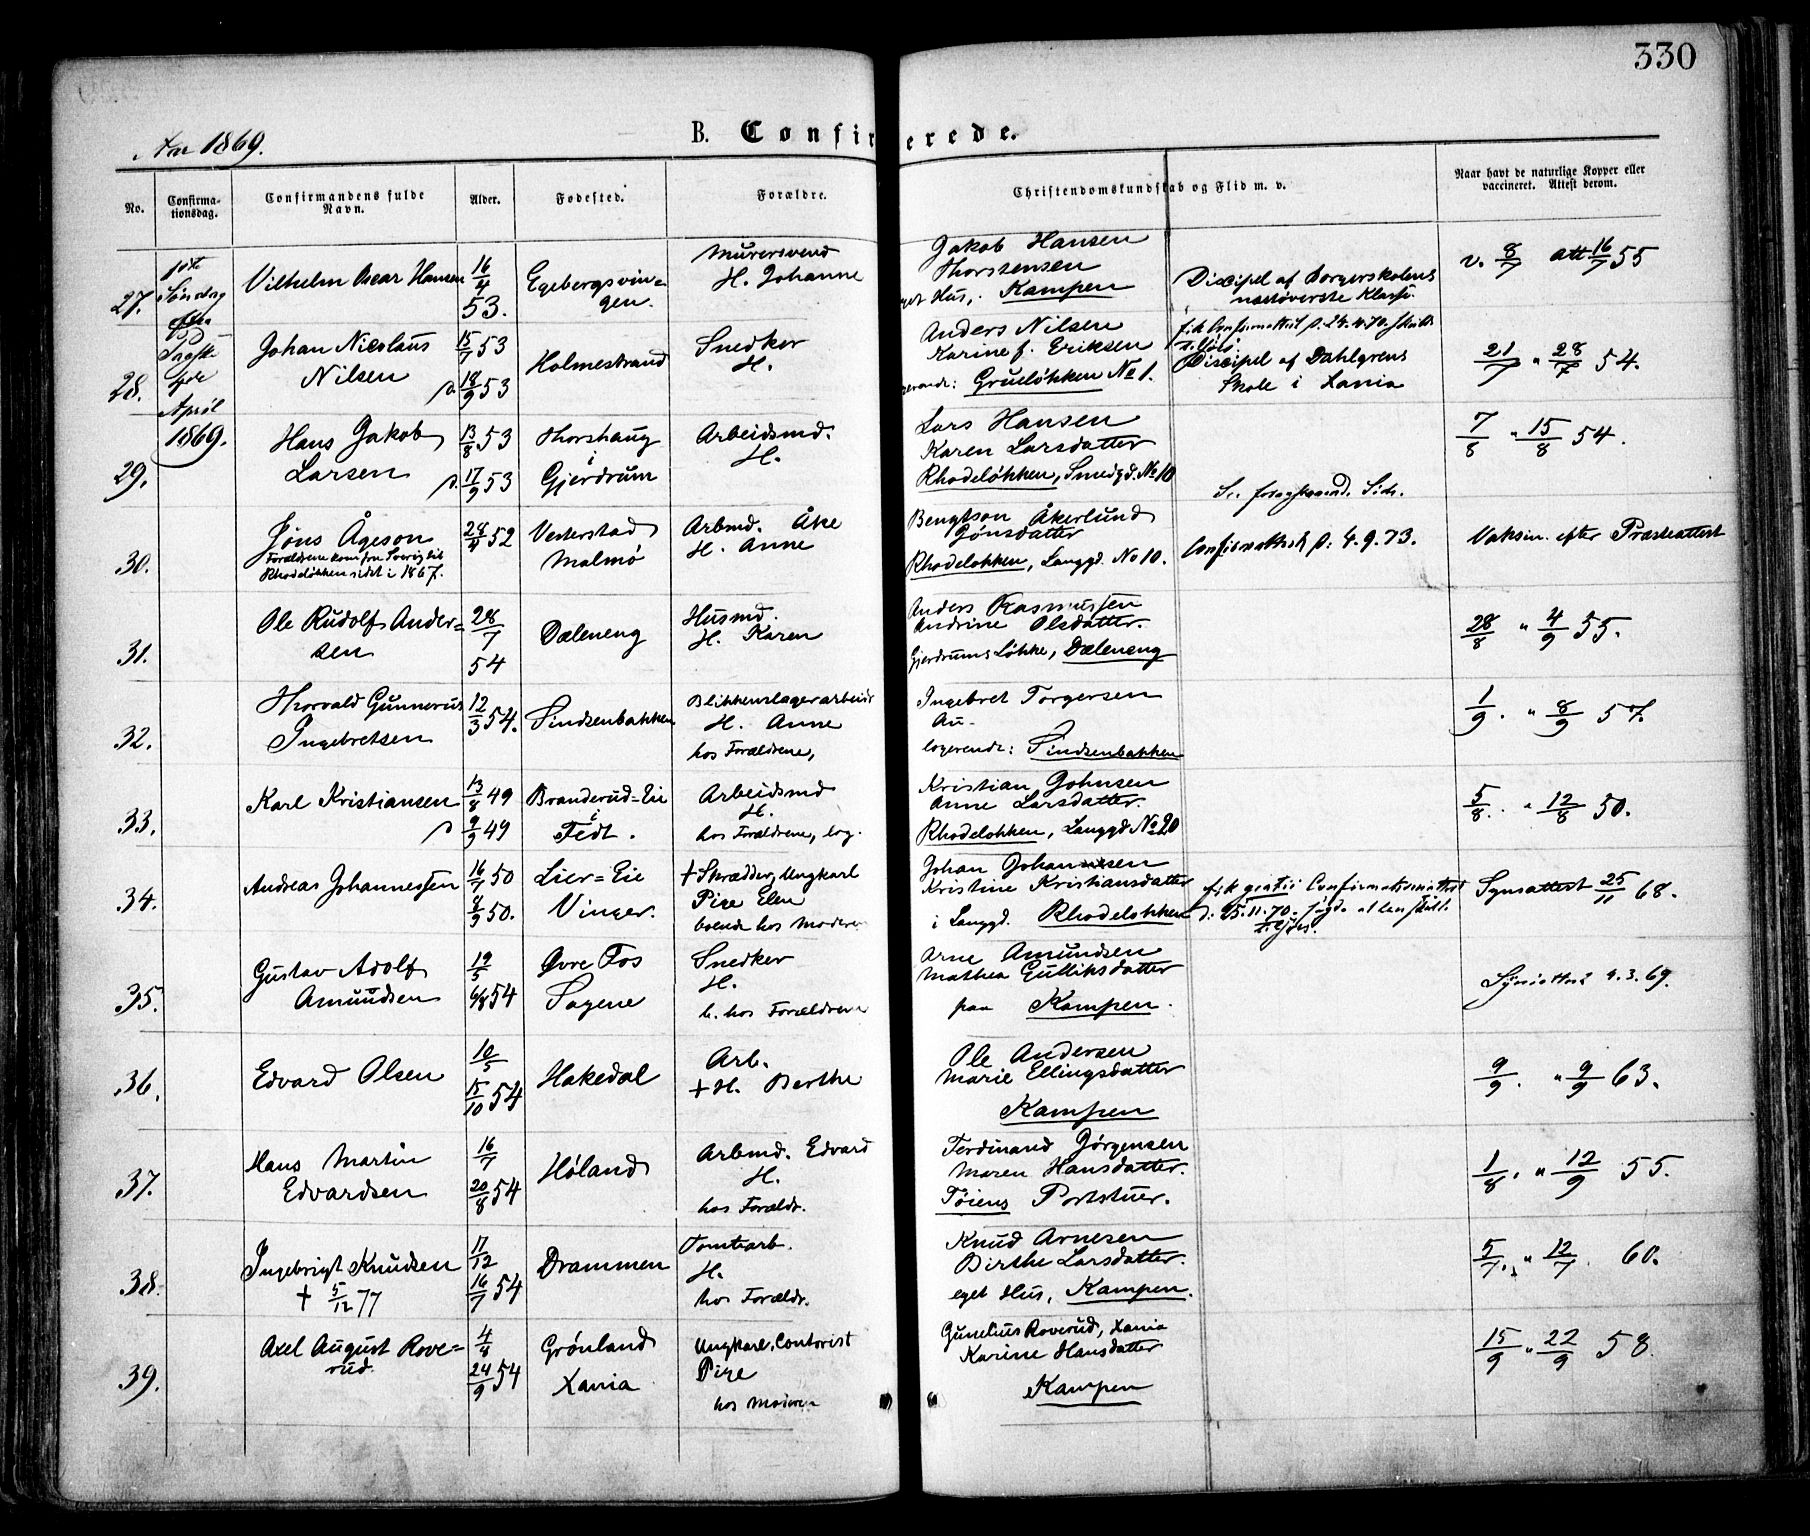 330
Aar 1869.
B. Confirmerede.
No.
Confirma-
tionsdag.
Confirmandens fulde
Navn.
Alder.
Fødested.
Forældre.
Christendomskundskab og Flid m. v.
Naar havt de naturlige Kopper eller
vaccineret. Attest derom.
1ste
Søndag
efter
Paaske
April
1869.
27. Vilhelm Oscar Hansen 16/4 53. Egebergsvin=
gen.
Murersvend Jakob Hansen
H. Johanne Thorstensen
eget Hus, Kampen
Discipel af Borgerskolens
næstøverste Klasse.
v. 8/7 att 16/7 55
28. Johan Nicolaus
Nilsen
15/7 53
d. 18/9 53
Holmestrand
Snedker Anders Nilsen
H. Karine f. Eriksen
logerende: Grueløkken No 1.
fik Confirmattest d. 24.4.70.
Discipel af Dahlgrens
Skole i Xania
21/7 " 28/7 54.
29. Hans Jakob
Larsen
13/8 53
d. 17/9 53
Thorshaug
i
Gjerdrum
Arbeidsmd. Lars Hansen
H. Karen Larsdatter
Rhodeløkken, Smedgd. No 10
Se foregaaende Side.
7/8 " 15/8 54.
30. Jøns Ågeson
Forældrene kom fra Sverig til
Rhodeløkken sidst i 1867.
28/4 52
Vesterstad
Malmø
Arbmd. Åke Bengtson Åkerlund
H. Anne Jønsdatter
Rhodeløkken, Langgd. No 10.
Confirmattest d. 4.9.73.
Vaksin. efter Præsteattest
31. Ole Rudolf Ander=
sen
28/7 54
Dæleneng
Husmd. Anders Rasmussen
H. Karen Andrine Olsdatter.
Gjerdrums Løkke, Dæleneng
28/8 " 4/9 55.
32. Thorvald Gunnerius
Ingebretsen
12/3 54.
Sindsenbakken
Blikkenslagerarbeidr Ingebret Torgersen
H. Anne Au-
hos Forældrene, logerende: Sindsenbakken
1/9. " 8/9 57.
33. Karl Kristiansen
13/8 49
d. 9/9 49
Branderud=Eie
i
Fedt.
Arbeidsmd Kristian Johnsen
H. Anne Larsdatter.
hos Forældrene, log. Rhodeløkken, Langgd No 20
5/8. " 12/8 50.
34. Andreas Johannessen
16/7 50
8/9 50.
Lier=Eie
Vinger.
+ Skrædder, Ungkarl Johan Johannesen
Pige Elen Kristine Kristiansdatter
boende hos Moderen i Langgd. Rhodeløkken
fik gratis Confirmationsattest
d. 25.11.70.
Synsattest 25/11 68.
35. Gustav Adolf
Amundsen
19/5
6/8 54
Øvre Fos
Sagene
Snedker Arne Amundsen
H. Mathea Gulliksdatter
b. hos Forældrene paa Kampen.
Synsattest 4.3.69.
36. Edvard Olsen
10/5
15/10 54
Hakedal
Arb. Ole Andersen
+ H. Berthe Marie Ellingsdatter
Kampen
9/9. " 9/9 63.
37. Hans Martin
Edvardsen
16/7
20/8 54
Høland
Arbmd. Edvard Ferdinand Jørgensen
H. Maren Hansdatter.
hos Forældr. Tøiens Portstuer.
1/8. " 12/9 55.
38. Ingebrigt Knudsen
+ 5/12 77
17/12
16/7 54
Drammen
Tomtearb. Knud Arnesen
H. Birthe Larsdatter.
hos Forældr. eget Hus, Kampen.
5/7. " 12/7 60.
39. Axel August Rove=
rud.
4/4
24/9 54
Grønland
Xania
Ungkarl, Contorist Gunelius Roverud, Xania
Pige Karine Hansdatter
hos Moderen Kampen
15/9 " 22/9 58.